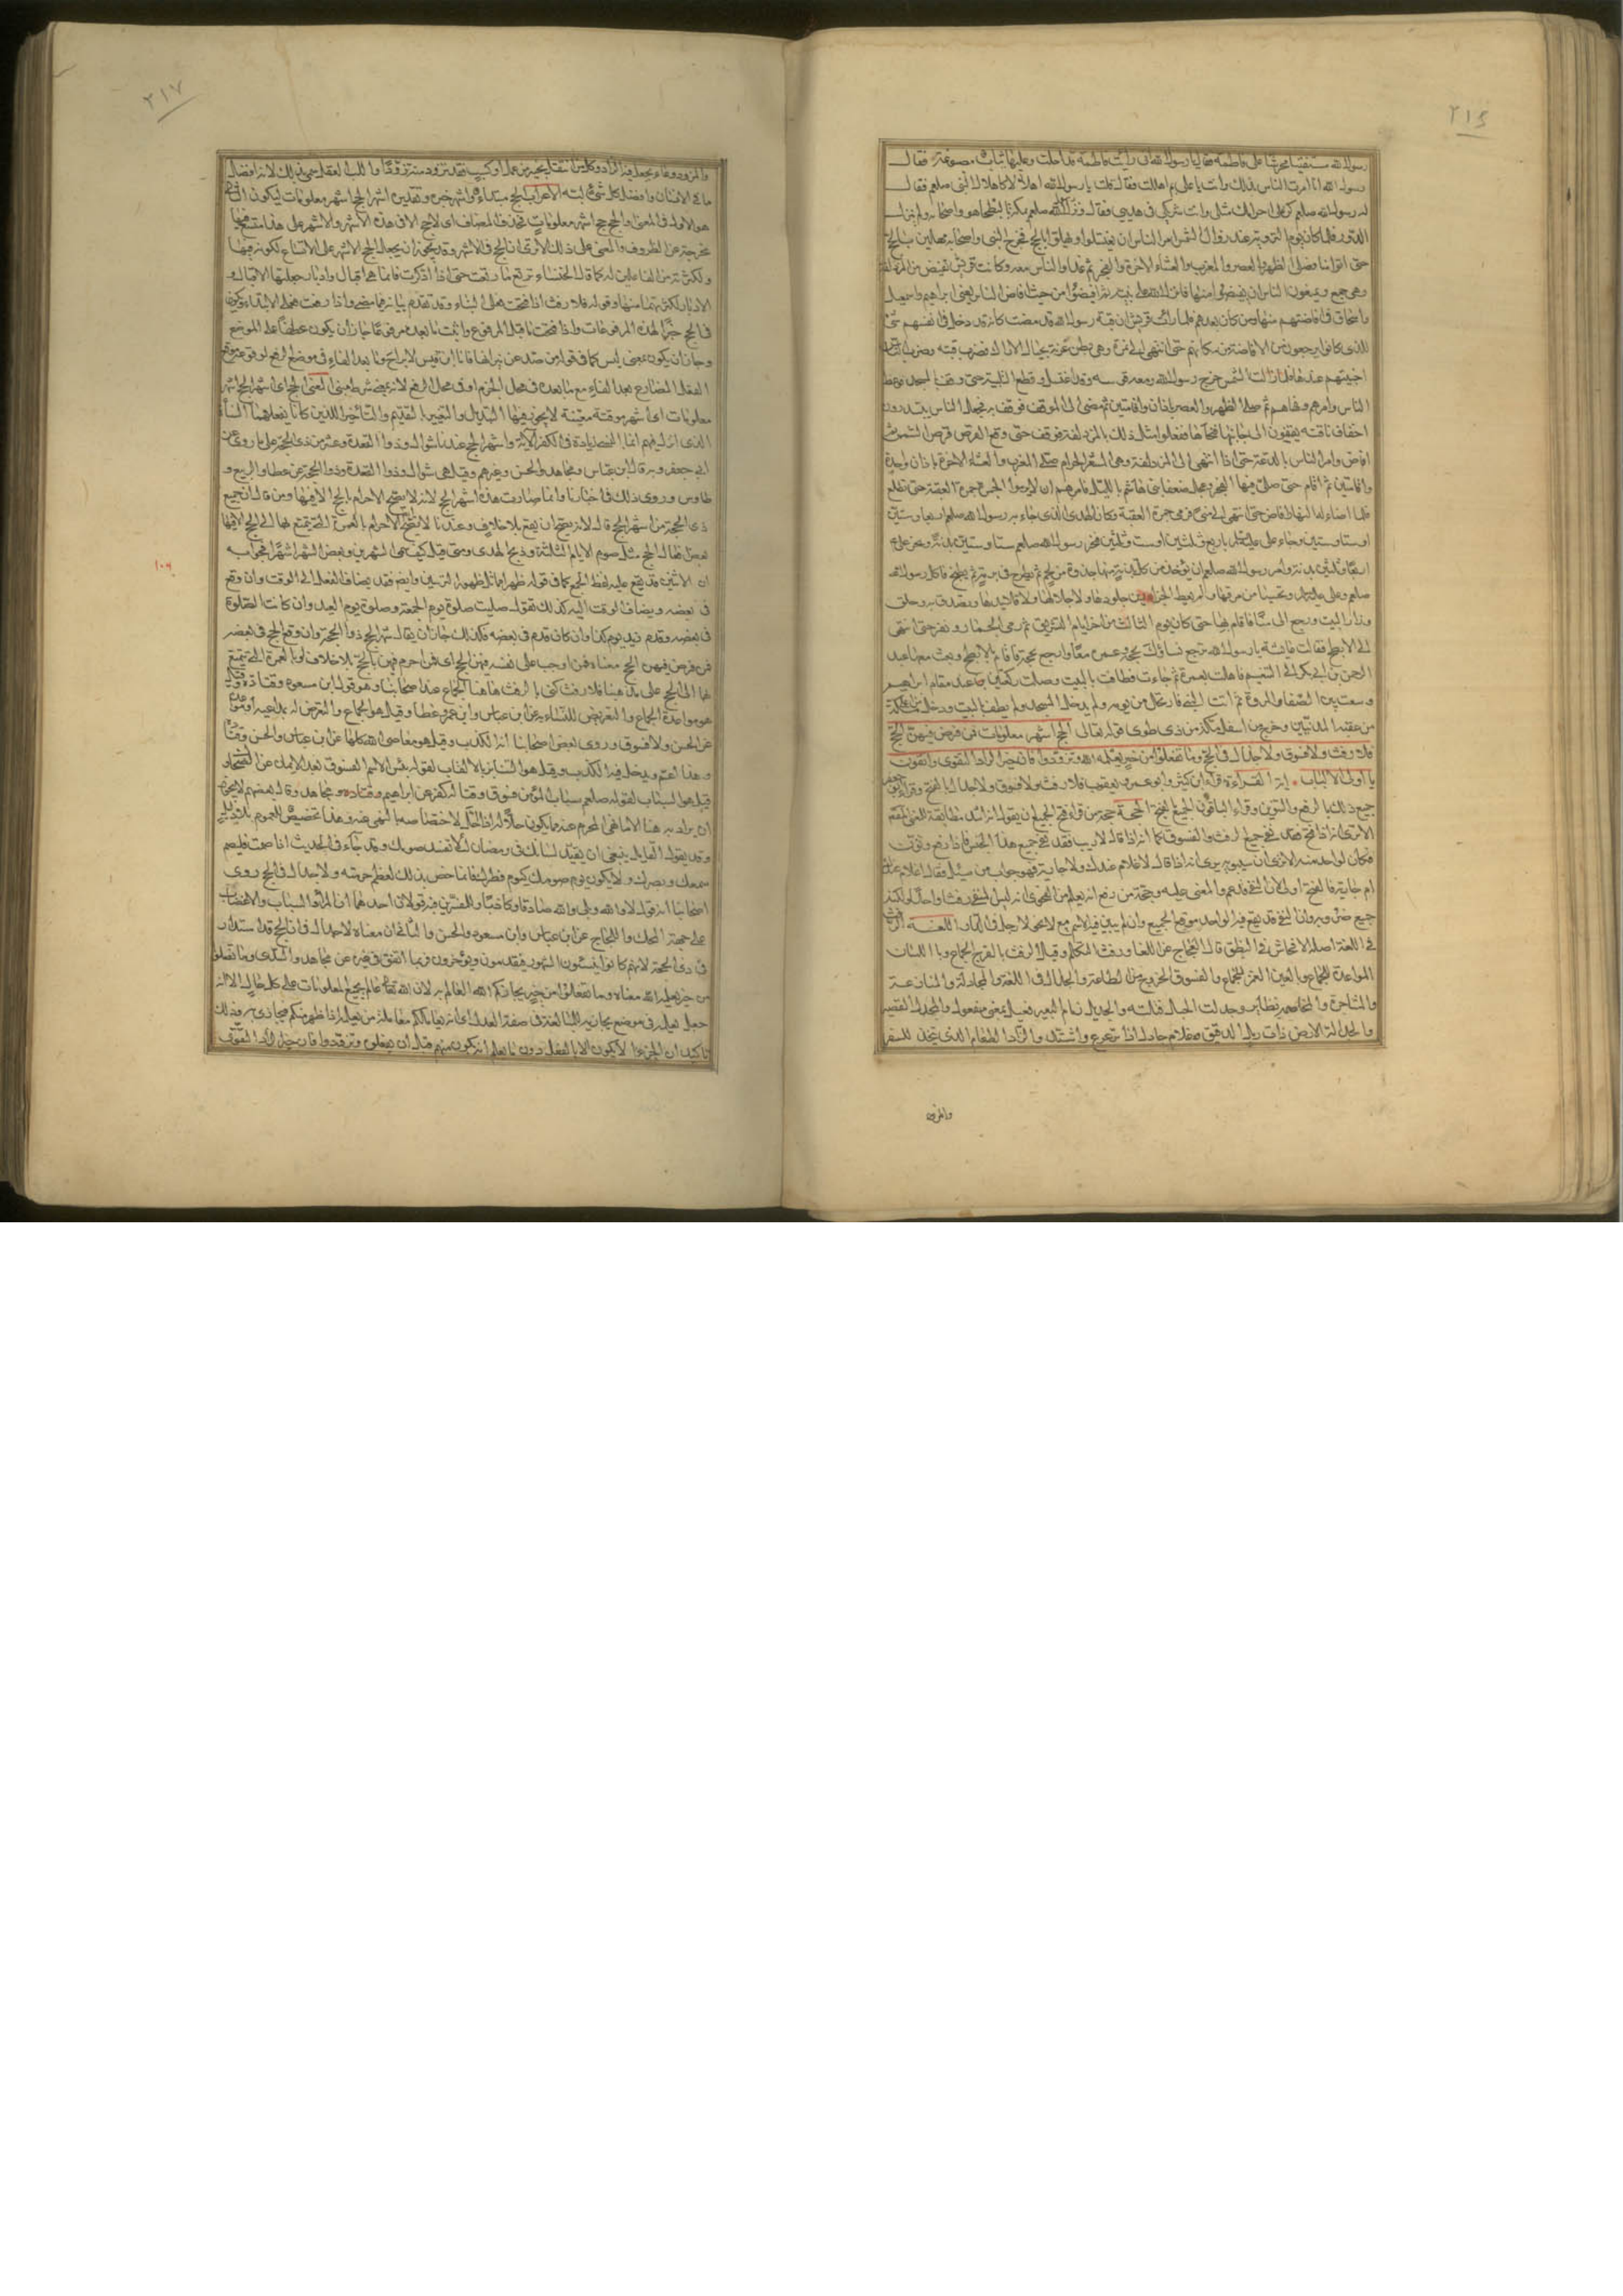 ٢١٦
رسول الله مستفتيا محرشا على فاطمة فقال يا رسول الله اني رأيت فاطمة قد احلت وعليها ثياب مصبوغة فقال
رسول الله انا امرت الناس بذلك وانت يا علي بم اهللت فقال قلت يا رسول الله اهلالا كاهلال النبي صلعم فقال
له رسول الله صلعم كن على احرامك مثلي وانت شريكي في هديي وقال ونزل رسول الله صلعم بمكة بالبطحاء هو واصحابه ولم ينزل
الدور فلما كان يوم التروية عند زوال الشمس امر الناس ان يغتسلوا ويهلوا بالحج فخرج النبي واصحابه مهلين بالحج
حتى اتوا منا فصلى الظهر والعصر والمغرب والعشاء الاخرة والفجر ثم غدا والناس معه وكانت قريش تفيض من المزدلفة
وهي جمع ويمنعون الناس ان يفيضوا منها فانزل الله على نبيه ثم افيضوا من حيث افاض الناس يعني ابراهيم واسمعيل
واسحاق في افاضتهم منها ومن كان بعدهم فلما رأت قريش ان قبة رسول الله قد مضت كانه دخل في انفسهم شيء
للذي كانوا يرجعون من الافاضة من مكانهم حتى انتهى الى نمرة وهي بطن عرنة بحيال الاراك فضرب قبته وضرب الناس
اخبيتهم عندها فلما زالت الشمس خرج رسول الله ومعه فرسه وقد اغتسل وقطع التلبية حتى وقف بالمسجد فوعظ
الناس وامرهم ونهاهم ثم صلى الظهر والعصر باذان واقامتين ثم مضى الى الموقف فوقف به فجعل الناس يبتدرون
اخفاف ناقته يقفون الى جانبها فنحاها ففعلوا مثل ذلك بالمزدلفة فوقف حتى وقع القرص قرص الشمس ثم
افاض وامر الناس بالدعة حتى اذا انتهى الى المزدلفة وهي المشعر الحرام صلى المغرب والعشاء الاخرة باذان واحد
واقامتين ثم اقام حتى صلى فيها الفجر وعجل ضعفاء بني هاشم بالليل وامرهم ان لا يرموا الجمرة جمرة العقبة حتى تطلع
فلما اضاء له النهار افاض حتى انتهى الى منى فرمى جمرة العقبة وكان الهدي الذي جاء به رسول الله صلعم اربعا وستين
او ستا وستين وجاء علي عليه السلام باربع وثلثين او ست وثلثين فنحر رسول الله صلعم ستا وستين بدنة ونحر علي
اربعا وثلثين بدنة وامر رسول الله صلعم ان يؤخذ من كل بدنة منها جذوة من لحم ثم تطرح في برمة ثم يطبخ فاكل رسول الله
صلعم وعلي عليه السلام وتحسيا من مرقها ولم يعط الجزارين جلودها ولا جلالها ولا قلائدها وتصدق به وحلق
وزار البيت ورجع الى منا فاقام بها حتى كان يوم الثالث من اخر ايام التشريق ثم رمى الجمار ونفر حتى انتهى
الى الابطح فقالت عائشة يا رسول الله ترجع نساؤك بحجة وعمرة معا وارجع بحجة فاقام بالابطح وبعث معها عبد
الرحمن بن ابي بكر الى التنعيم فاهلت بعمرة ثم جاءت فطافت بالبيت وصلت ركعتين عند مقام ابراهيم
وسعت بين الصفا والمروة ثم اتت النبي فارتحل من يومه ولم يدخل المسجد ولم يطف بالبيت ودخل من اعلى مكة
من عقبة المدنيين وخرج من اسفل مكة من ذي طوى قوله تعالى الحج اشهر معلومات فمن فرض فيهن الحج
فلا رفث ولا فسوق ولا جدال في الحج وما تفعلوا من خير يعلمه الله وتزودوا فان خير الزاد التقوى واتقون
يا اولي الالباب اية القراءة قرأ ابن كثير وابو عمرو ويعقوب فلا رفث ولا فسوق ولا جدال بالفتح وقرأ ابو جعفر
جميع ذلك بالرفع والتنوين وقرأ الباقون الجميع بالفتح الحجة حجة من قرأ فتح الجميع ان يقول انه اشد مطابقة للمعنى المقصود
الا ترى انه اذا فتح فقد نفى جميع الرفث والفسوق كما انه اذا قال لا ريب فقد نفى جميع هذا الجنس فاذا رفع ونون
فكان لواحد منه الا ترى ان سيبويه يرى انه اذا قال لا غلام عندك ولا جارية فهو جواب من سئل فقال اغلام عندك
ام جارية فالفتح اولى لان النفي قد عم والمعنى عليه وحجة من رفع انه يعلم من الفحوى انه ليس المنفي رفثا واحدا ولكنه
جميع ضروبه وان النفي قد يقع فيه الواحد موقع الجميع وان لم يبن فيه الاسم مع لا نحو لا رجل في الدار اللغة الرفث
في اللغة اصله الافحاش في النطق قال العجاج عن اللغا ورفث التكلم وقيل الرفث بالفرج الجماع وباللسان
المواعدة للجماع وبالعين الغمز للجماع والفسوق الخروج من الطاعة والجدال في اللغة والمجادلة والمنازعة
والمشاجرة والمخاصمة نظائر وجدلت الحبل فتلته والجديل زمام البعير فعيل بمعنى مفعول والمجدل القصر
والجدالة الارض ذات رمل الدقيق وغلام جادل اذا ترعرع واشتد والزاد الطعام الذي يتخذ للسفر
والمزود
٢١٧
والمزود وعاء يجعل فيه الزاد وكل من انتقل بخير من عمل او كسب فقد تزود منه تزودا واللب العقل سمي بذلك لانه افضل
ما في الانسان وافضل كل شيء لبه الاعراب الحج مبتدأ واشهر خبره وتقديره اشهر الحج اشهر معلومات ليكون الثاني
هو الاول في المعنى والحج حج اشهر معلومات فحذف المضاف اي لا حج الا في هذه الاشهر والاشهر على هذا متسع فيها
مخرجة عن الظروف والمعنى على ذلك الا ترى ان الحج في الاشهر وقد يجوز ان يجعل الحج الاشهر على الاتساع لكونه فيها
ولكثرته من الفاعلين له كما قالت الخنساء ترتع ما رتعت حتى اذا ادكرت فانما هي اقبال وادبار جعلتها الاقبال و
الادبار لكثرتهما منها وقوله فلا رفث اذا فتحت فعلى البناء وقد تقدم بيانه فيما مضى واذا رفعت فعلى الابتداء ويكون
في الحج خبرا لهذه المرفوعات واذا فتحت ما قبل المرفوع واثبت ما بعده مرفوعا جاز ان يكون عطفا على الموضع
وجاز ان يكون بمعنى ليس كما في قوله من صد عن نيرانها فانا ابن قيس لا براح وما بعد الفاء في موضع الرفع لوقوعه موقع
الفعل المضارع بعد الفاء مع ما بعده في محل الجزم او في محل الرفع لانه جواب شرط مبني المعنى الحج اي اشهر الحج اشهر
معلومات اي اشهر موقتة معينة لا يجوز فيها التبديل والتغيير بالتقديم والتأخير اللذين كانا يفعلهما النسأة
الذين انزل فيهم انما النسيء زيادة في الكفر الاية واشهر الحج عندنا شوال وذو القعدة وعشر من ذي الحجة على ما روي عن
ابي جعفر وبه قال ابن عباس ومجاهد والحسن وغيرهم وقيل هي شوال وذو القعدة وذو الحجة عن عطا والربيع و
طاوس وروي ذلك في اخبارنا وانما صارت هذه اشهر الحج لانه لا يصح الاحرام بالحج الا فيها ومن قال ان جميع
ذي الحجة من اشهر الحج قال لانه يصح ان يقع بلا خلاف وعندنا لا يصح الاحرام بالعمرة التي يتمتع بها الى الحج الا فيها
بعض افعال الحج مثل صوم الايام الثلثة وذبح الهدي ومتى قيل كيف سمى الشهرين وبعض الشهر اشهرا فجوابه
ان الاثنين قد يقع عليه لفظ الجمع كما في قوله ظهراهما مثل ظهور الترسين وايضا فقد يضاف الفعل الى الوقت وان وقع
في بعضه ويضاف الوقت اليه كذلك تقول صليت صلوة يوم الجمعة وصلوة يوم العيد وان كانت الصلوة
في بعضه وقدم زيد يوم كذا وان كان قدم في بعضه فكذلك جاز ان يقال شهر الحج ذو الحجة وان وقع الحج في بعضه
فمن فرض فيهن الحج معناه فمن اوجب على نفسه فيهن الحج اي فمن احرم فيهن بالحج بلا خلاف او بالعمرة التي يتمتع
بها الى الحج على مذهبنا فلا رفث كنى بالرفث هاهنا عن الجماع عند اصحابنا وهو قول ابن مسعود وقتادة وقيل
هو مواعدة الجماع والتعريض للنساء به عن ابن عباس وابن عمر وعطا وقيل هو الجماع والتعرض له بمداعبة او مواعدة
عن الحسن ولا فسوق وروى بعض اصحابنا انه الكذب وقيل هو معاصي الله كلها عن ابن عباس والحسن وقتادة
وهذا اعم ويدخل فيه الكذب وقيل هو التنابز بالالقاب لقوله بئس الاسم الفسوق بعد الايمان عن الضحاك و
قيل هو السباب لقوله صلعم سباب المؤمن فسوق وقتاله كفر عن ابراهيم وقتادة ومجاهد وقال بعضهم لا يجوز
ان يراد به هنا الا ما نهي المحرم عنه مما يكون حلالا له اذا احل لاختصاصه بالنهي عنه وهذا تخصيص للعموم بلا دليل
وقد يقول القائل ينبغي ان تقيد لسانك في رمضان لئلا تفسد صومك وقد جاء في الحديث اذا صمت فليصم
سمعك وبصرك ولا يكون يوم صومك كيوم فطرك فانما خص بذلك لعظم حرمته ولا جدال في الحج روى
اصحابنا انه قول لا والله وبلى والله صادقا وكاذبا وللمفسرين فيه قولان احدهما انه المراء والسباب والاغضاب
على جهة المحك واللجاج عن ابن عباس وابن مسعود والحسن والثاني ان معناه لا جدال في ان الحج قد استدار
في ذي الحجة لانهم كانوا ينسئون الشهور فيقدمون ويؤخرون فربما اتفق في غيره عن مجاهد والسدي وما تفعلوا
من خير يعلمه الله معناه وما تفعلوا من خير يجازكم الله العالم به لان الله تعالى عالم بجميع المعلومات على كل حال الا انه
جعل يعلمه في موضع يجازيه للمبالغة في صفة العدل اي انه يعاملكم معاملة من يعلمه اذا ظهر منكم فيجازي به وذلك
تأكيد ان الجزاء لا يكون الا بالفعل دون ما يعلم انه يكون منهم قبل ان يفعلوه وتزودوا فان خير الزاد التقوى
١٠٦